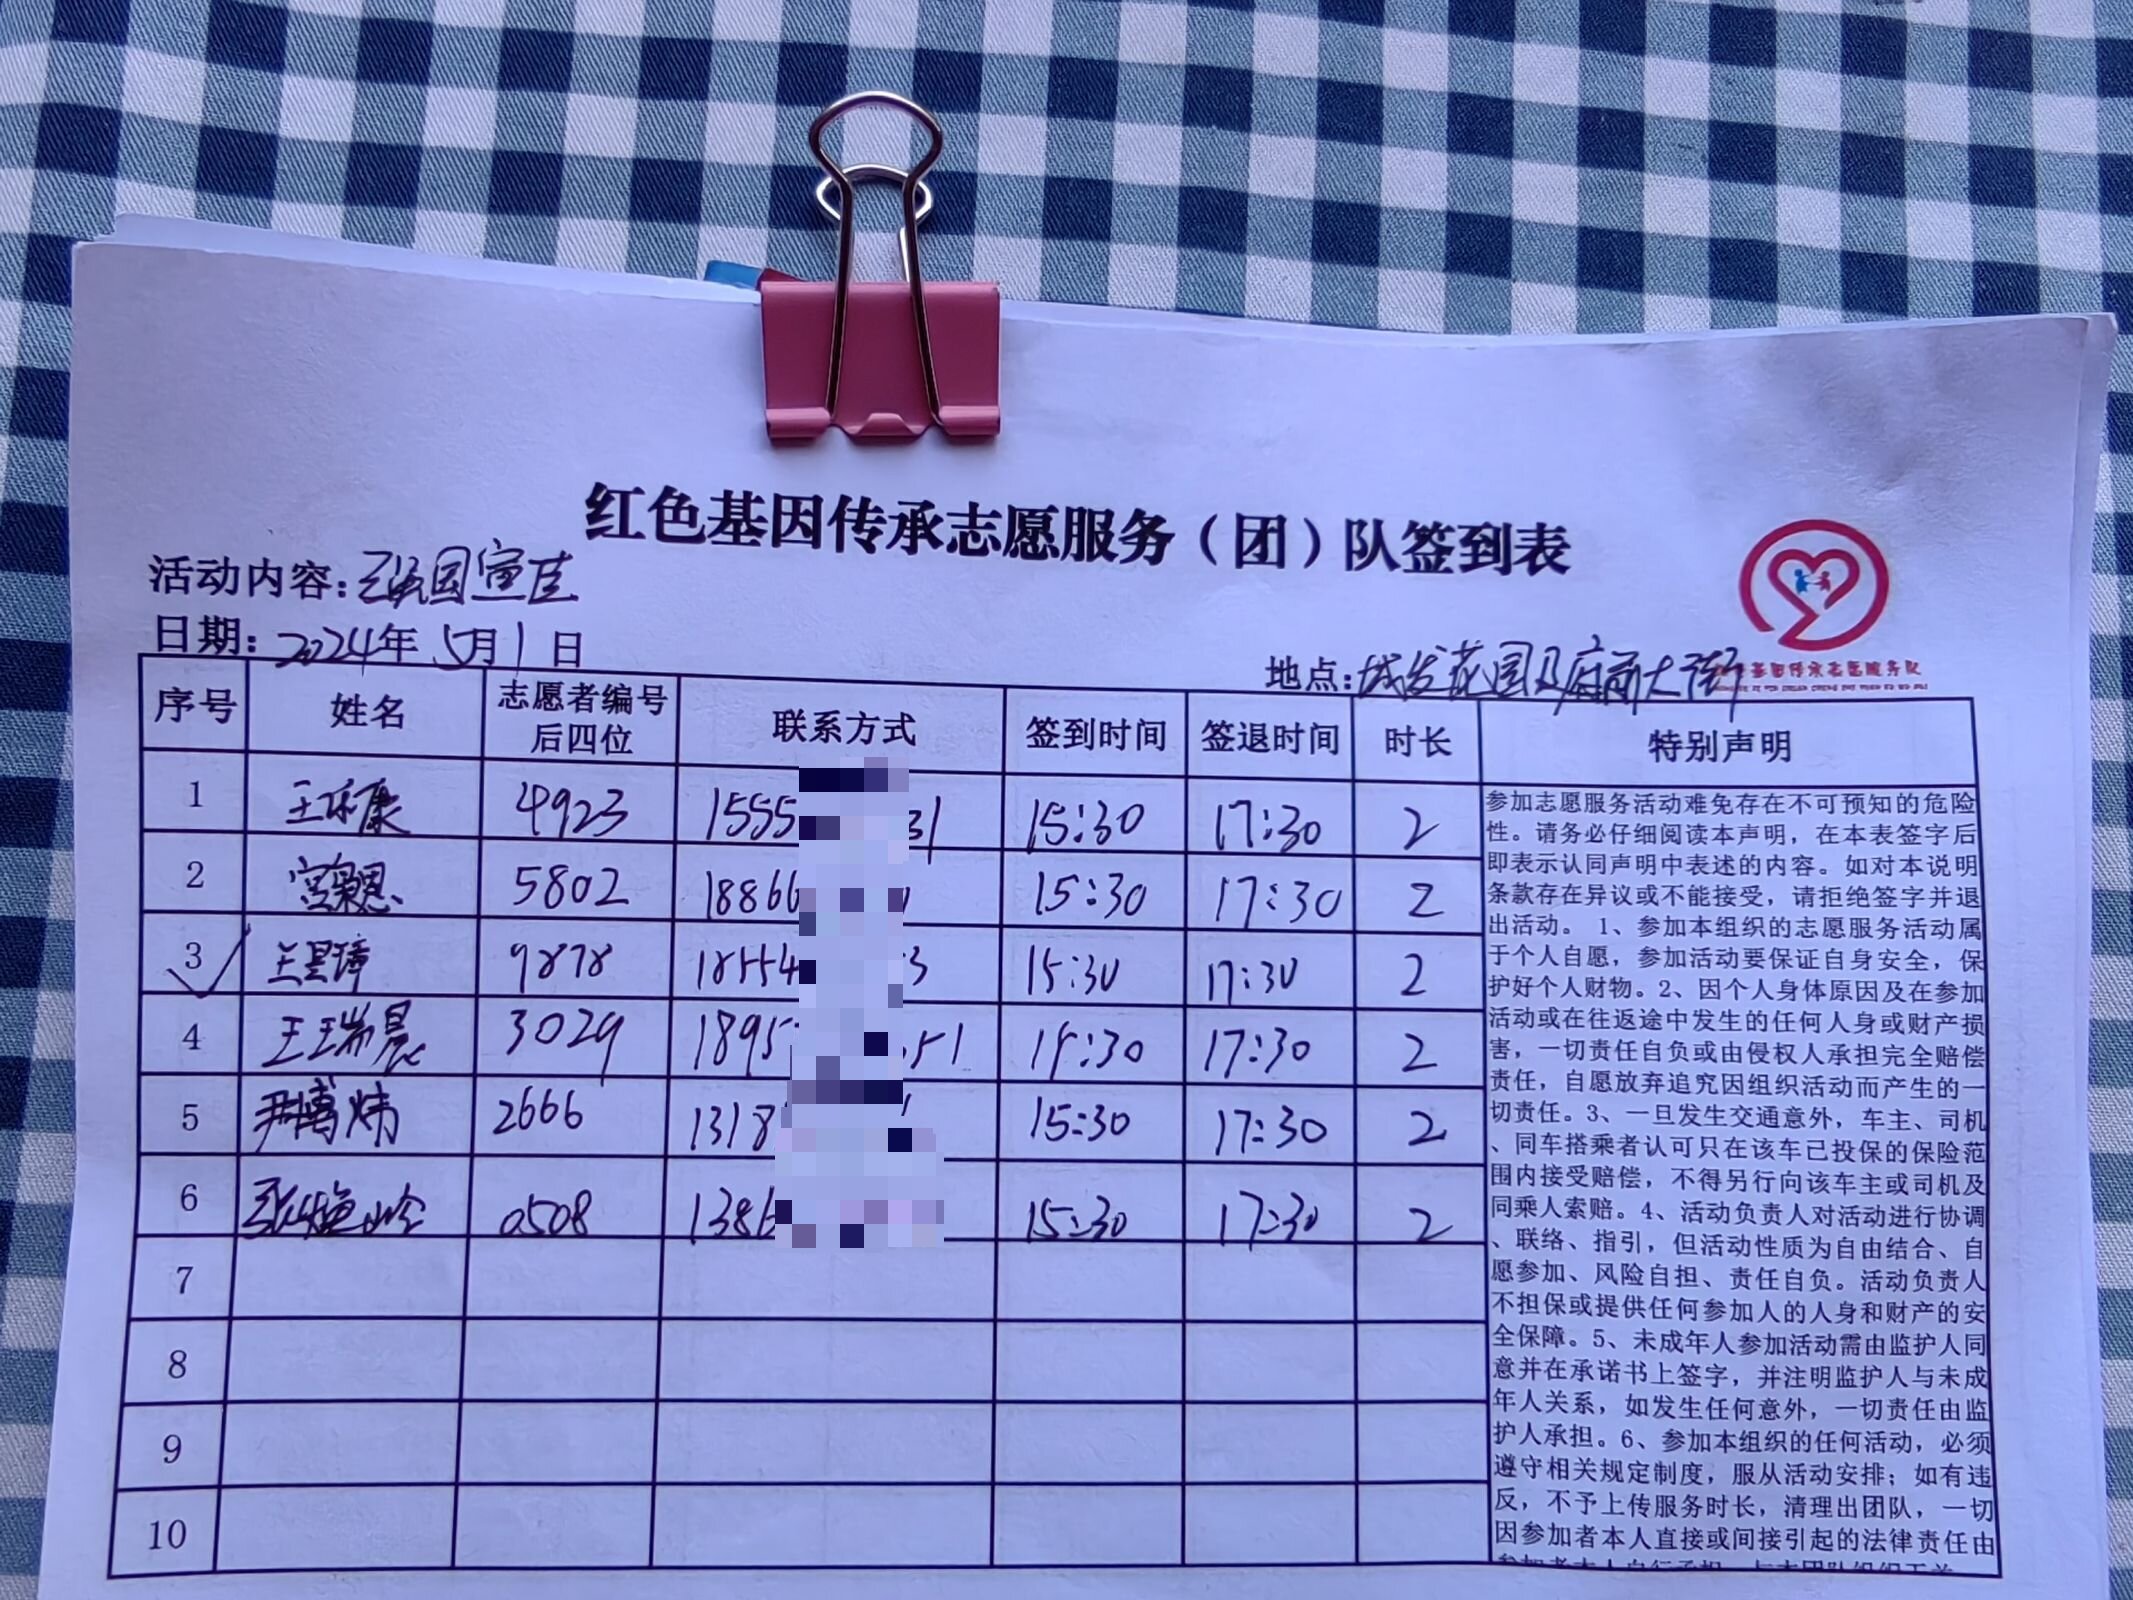 红色基因传承志愿服务（团）队签到表
活动内容：
日期：2024年 5月1日
地点：城发花园及府前大街
序号 姓名 志愿者编号后四位 联系方式 签到时间 签退时间 时长 特别声明
1 4923 1555 31 15:30 17:30 2
2 5802 18866 15:30 17:30 2
3 9878 18554 3 15:30 17:30 2
4 王瑞晨 3029 1895 51 15:30 17:30 2
5 尹博炜 2666 1318 15:30 17:30 2
6 0508 1386 15:30 17:30 2
7
8
9
10
参加志愿服务活动难免存在不可预知的危险
性。请务必仔细阅读本声明，在本表签字后
即表示认同声明中表述的内容。如对本说明
条款存在异议或不能接受，请拒绝签字并退
出活动。 1、参加本组织的志愿服务活动属
于个人自愿，参加活动要保证自身安全，保
护好个人财物。2、因个人身体原因及在参加
活动或在往返途中发生的任何人身或财产损
害，一切责任自负或由侵权人承担完全赔偿
责任，自愿放弃追究因组织活动而产生的一
切责任。3、一旦发生交通意外，车主、司机
、同车搭乘者认可只在该车已投保的保险范
围内接受赔偿，不得另行向该车主或司机及
同乘人索赔。4、活动负责人对活动进行协调
、联络、指引，但活动性质为自由结合、自
愿参加、风险自担、责任自负。活动负责人
不担保或提供任何参加人的人身和财产的安
全保障。5、未成年人参加活动需由监护人同
意并在承诺书上签字，并注明监护人与未成
年人关系，如发生任何意外，一切责任由监
护人承担。6、参加本组织的任何活动，必须
遵守相关规定制度，服从活动安排；如有违
反，不予上传服务时长，清理出团队，一切
因参加者本人直接或间接引起的法律责任由